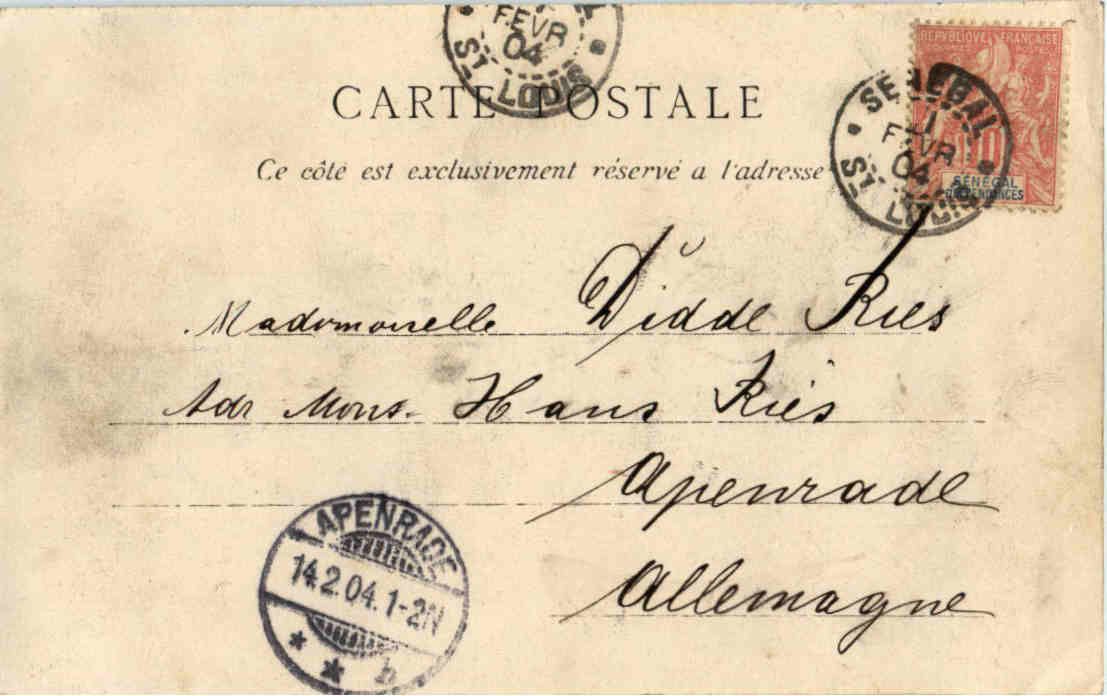 FEVR
04
ST LOUIS
CARTE POSTALE
Ce côté est exclusivement réservé a l'adresse
REPVBLIQVE FRANÇAISE
COLONIES POSTES
10
SÉNÉGAL
DÉPENDANCES
SENEGAL
FEVR
04
ST LOUIS
Mademoiselle Didde Ries
Adr Mons. Hans Ries
Apenrade
Allemagne
APENRADE
14.2.04.1-2N
* * b